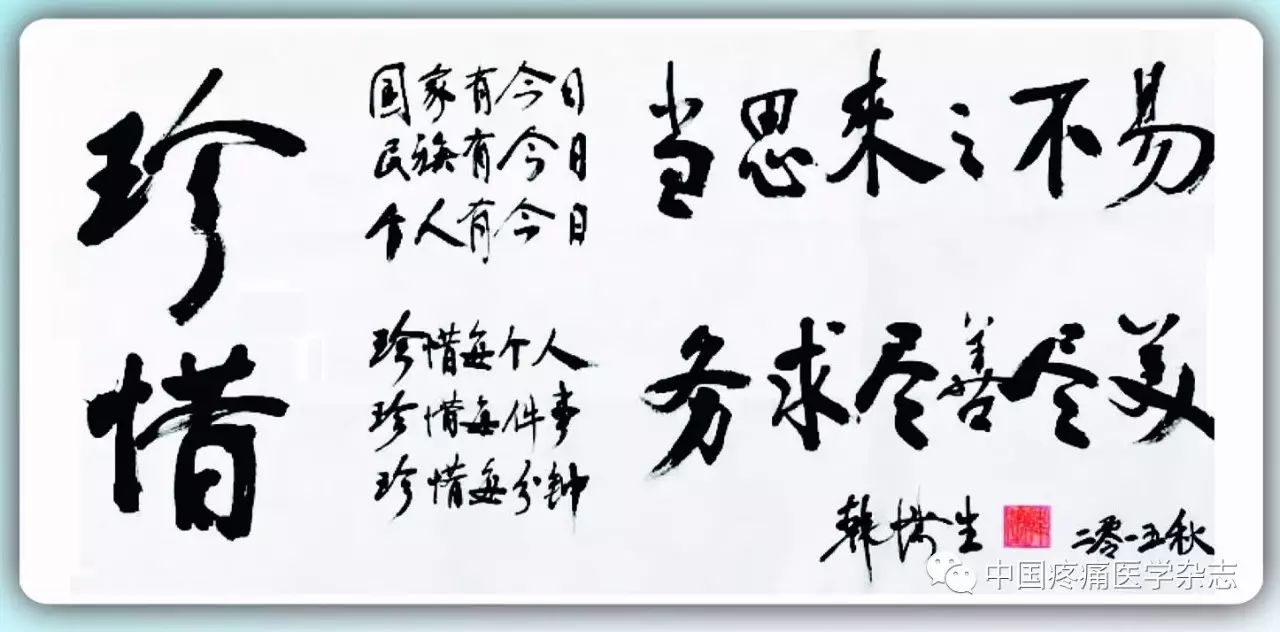 珍惜
国家有今日
民族有今日
个人有今日
当思来之不易
珍惜每个人
珍惜每件事
珍惜每分钟
务求尽善尽美
韩济生
二零一五秋
中国疼痛医学杂志